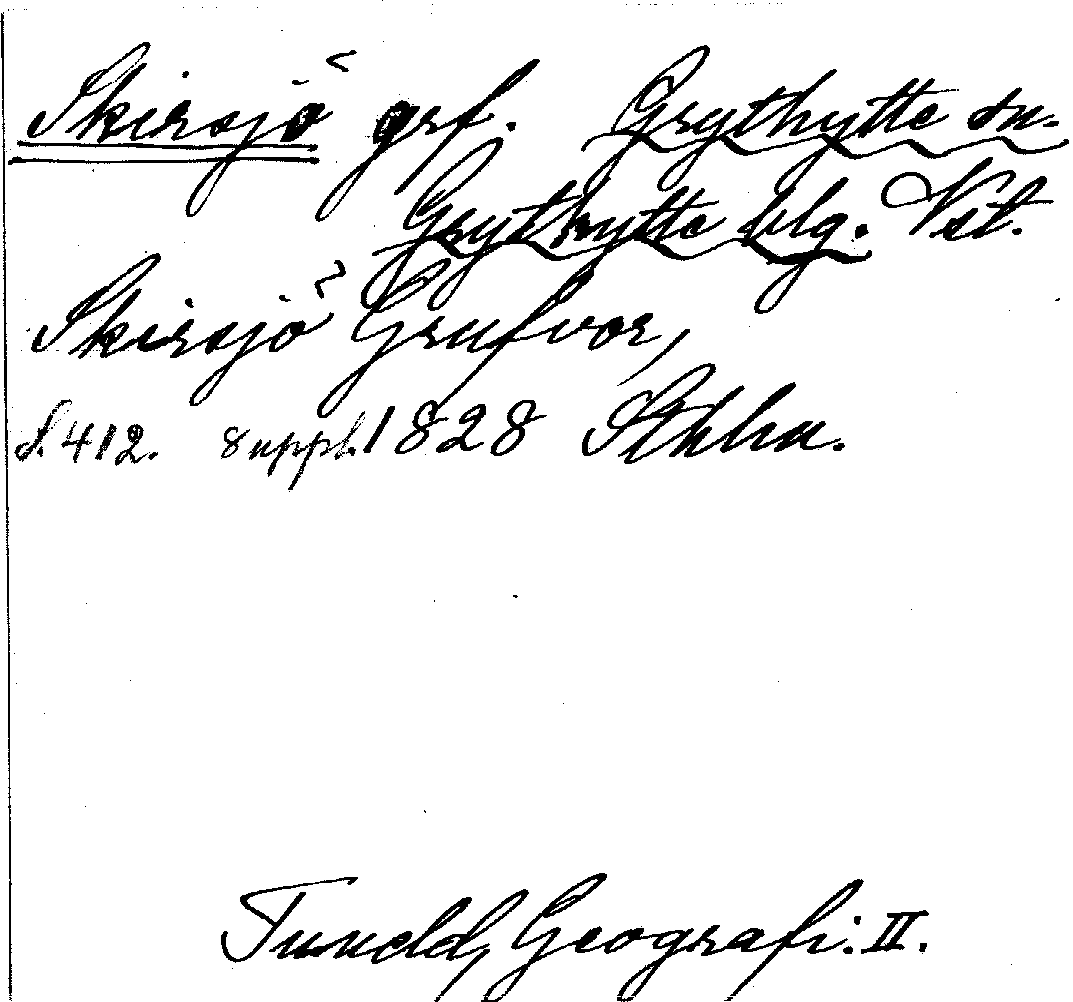 Skirsjö grf. Grythytte sn.
Grythytte blg. Vstl.
Skirsjö Grufvor,
S. 412. 8 uppl. 1828 Sthlm.
Tuneld, Geografi. II.